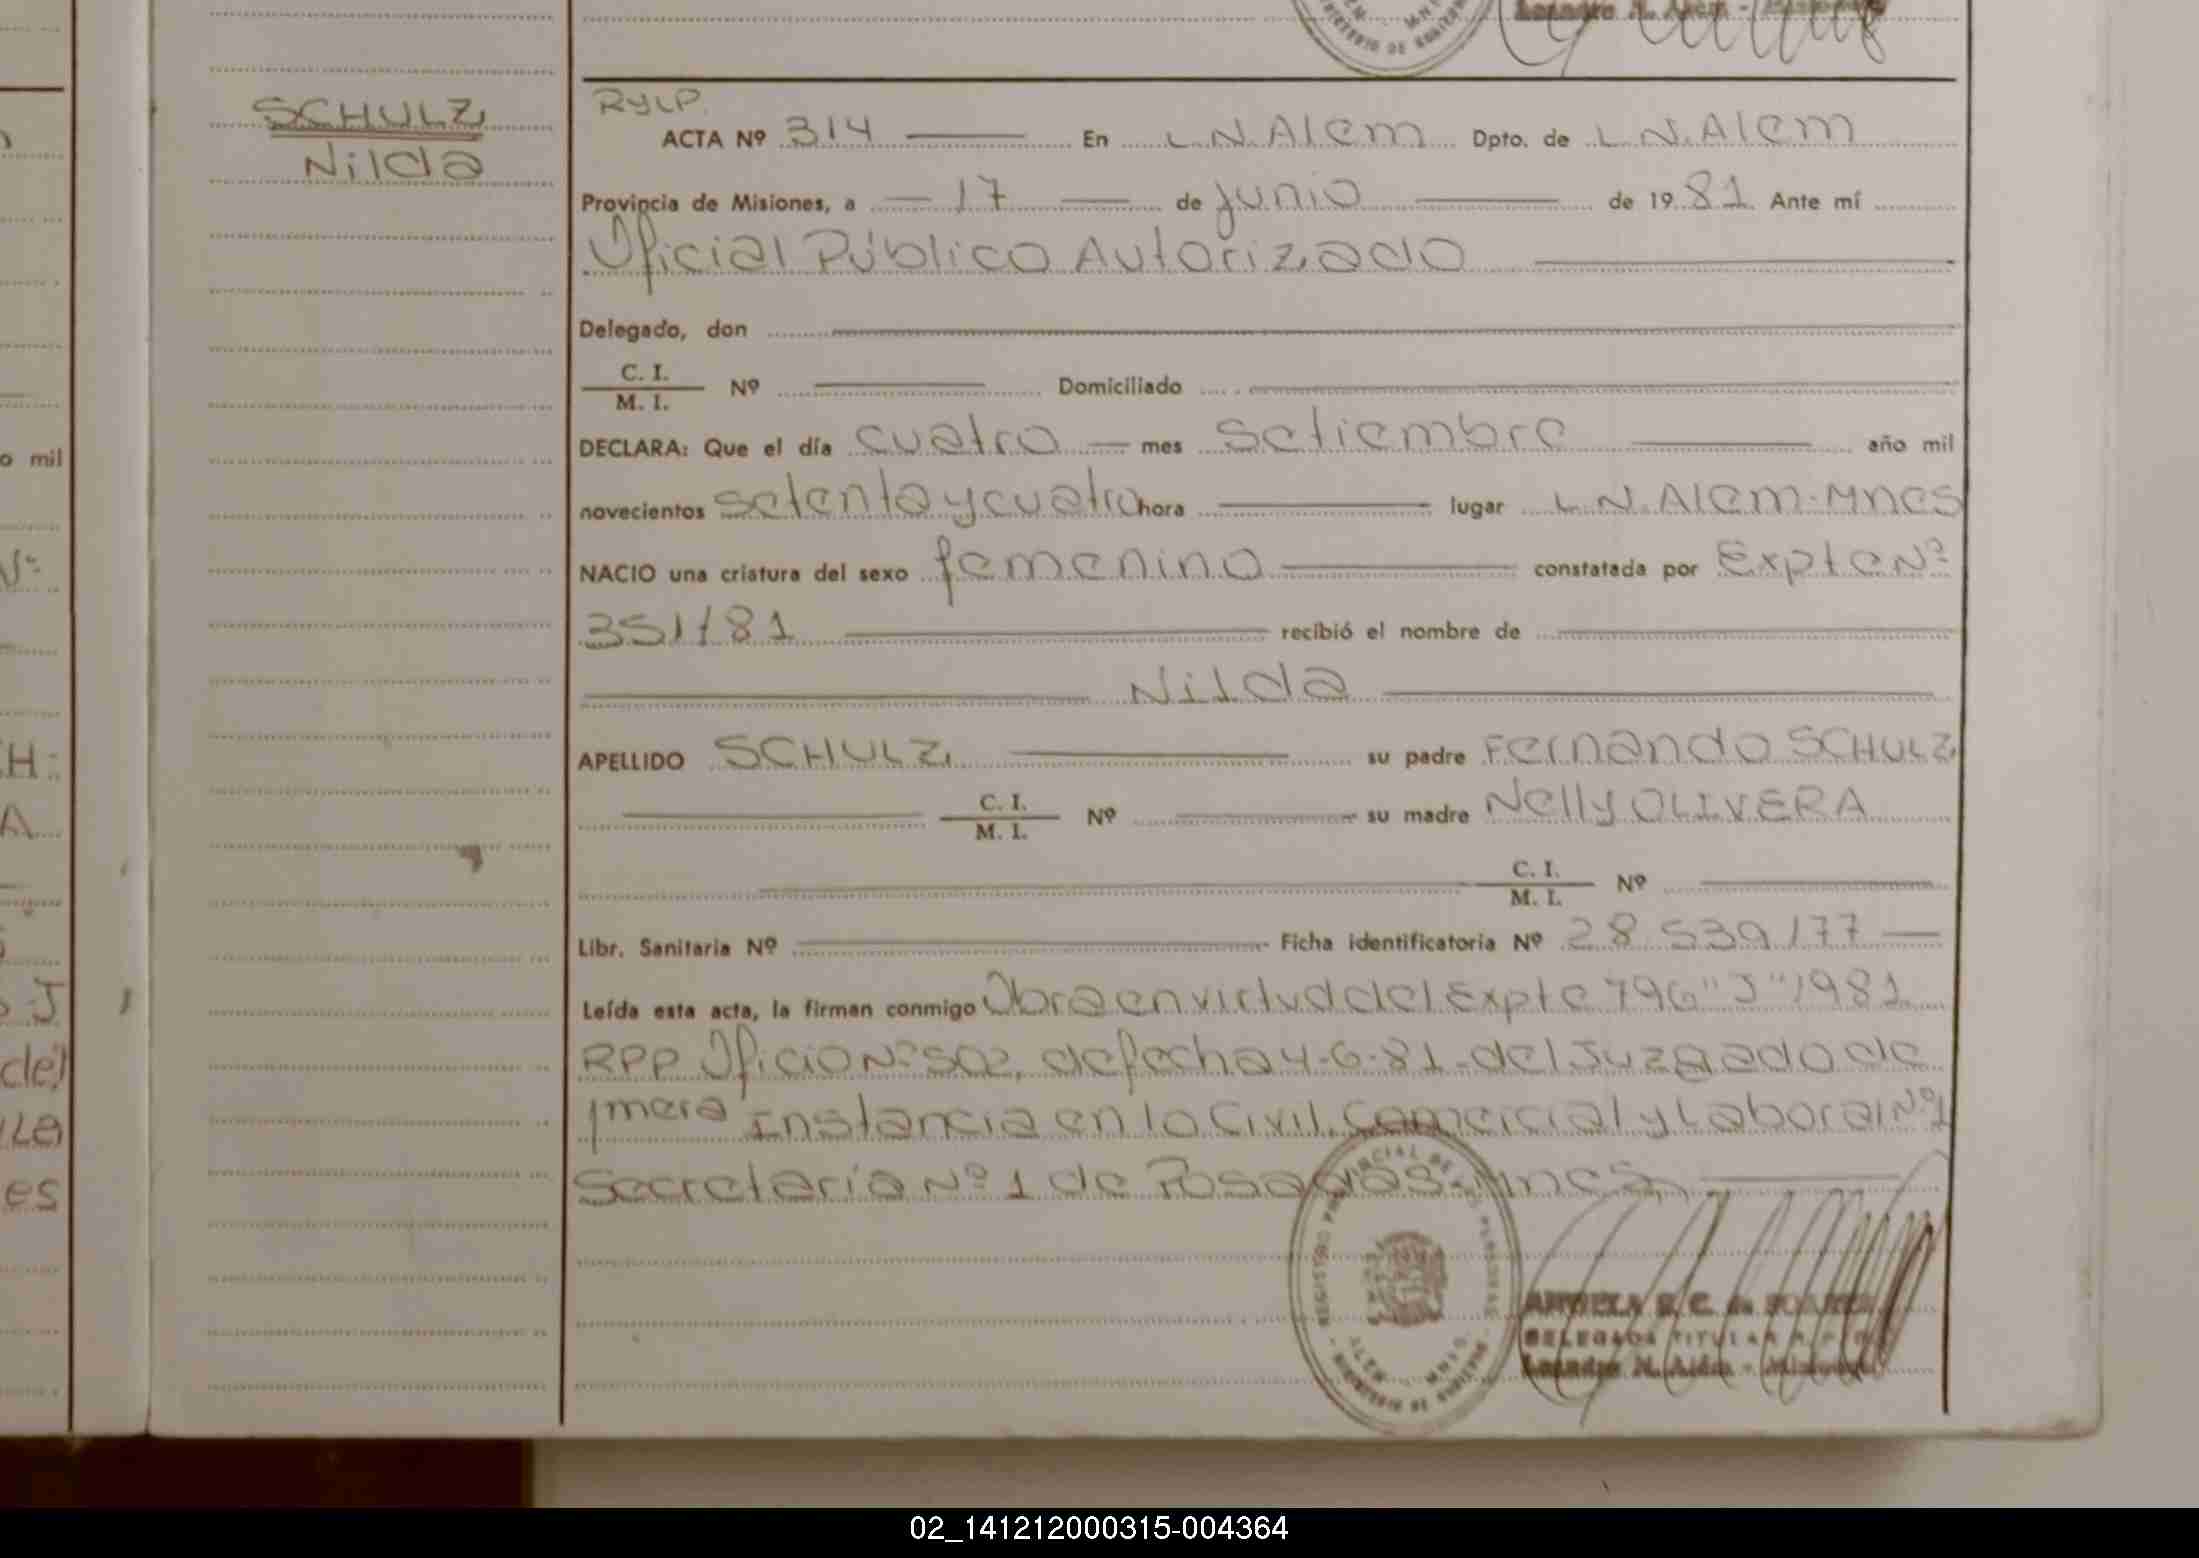 Leandro N. Alem - Misiones
MINISTERIO DE GOBIERNO
SCHULZ
Nilda
RYLP.
ACTA Nº 314 En L.N. Alem Dpto. de L.N. Alem
Provincia de Misiones, a 17 de junio de 1981 Ante mí
Oficial Público Autorizado
Delegado, don
C. I.
M. I. Nº Domiciliado
DECLARA: Que el día cuatro mes setiembre año mil
novecientos setenta y cuatro hora lugar L.N. Alem. Mnes
NACIO una criatura del sexo femenino constatada por Expte Nº
351/81 recibió el nombre de
Nilda
APELLIDO SCHULZ su padre Fernando SCHULZ
C. I.
M. I. Nº su madre Nelly OLIVERA
C. I.
M. I. Nº
Libr. Sanitaria Nº Ficha identificatoria Nº 28.539.177
Leída esta acta, la firman conmigo Obra en virtud del Expte 796 "J" 1981
RPP Oficio Nº 502, de fecha 4-6-81 - del Juzgado de
1mera Instancia en lo Civil, Comercial y Laboral Nº 1
Secretaría Nº 1 de Posadas - Mnes
REGISTRO PROVINCIAL DE LAS PERSONAS
ALEM - MNES
MINISTERIO DE GOBIERNO
DELEGADA TITULAR
Leandro N. Alem - Misiones
o mil
Nº
H:
A
J
del
es
02_141212000315-004364